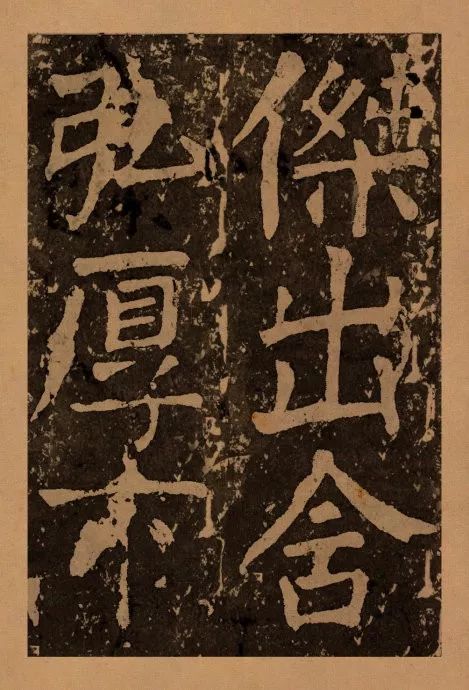 傑出含
弘厚